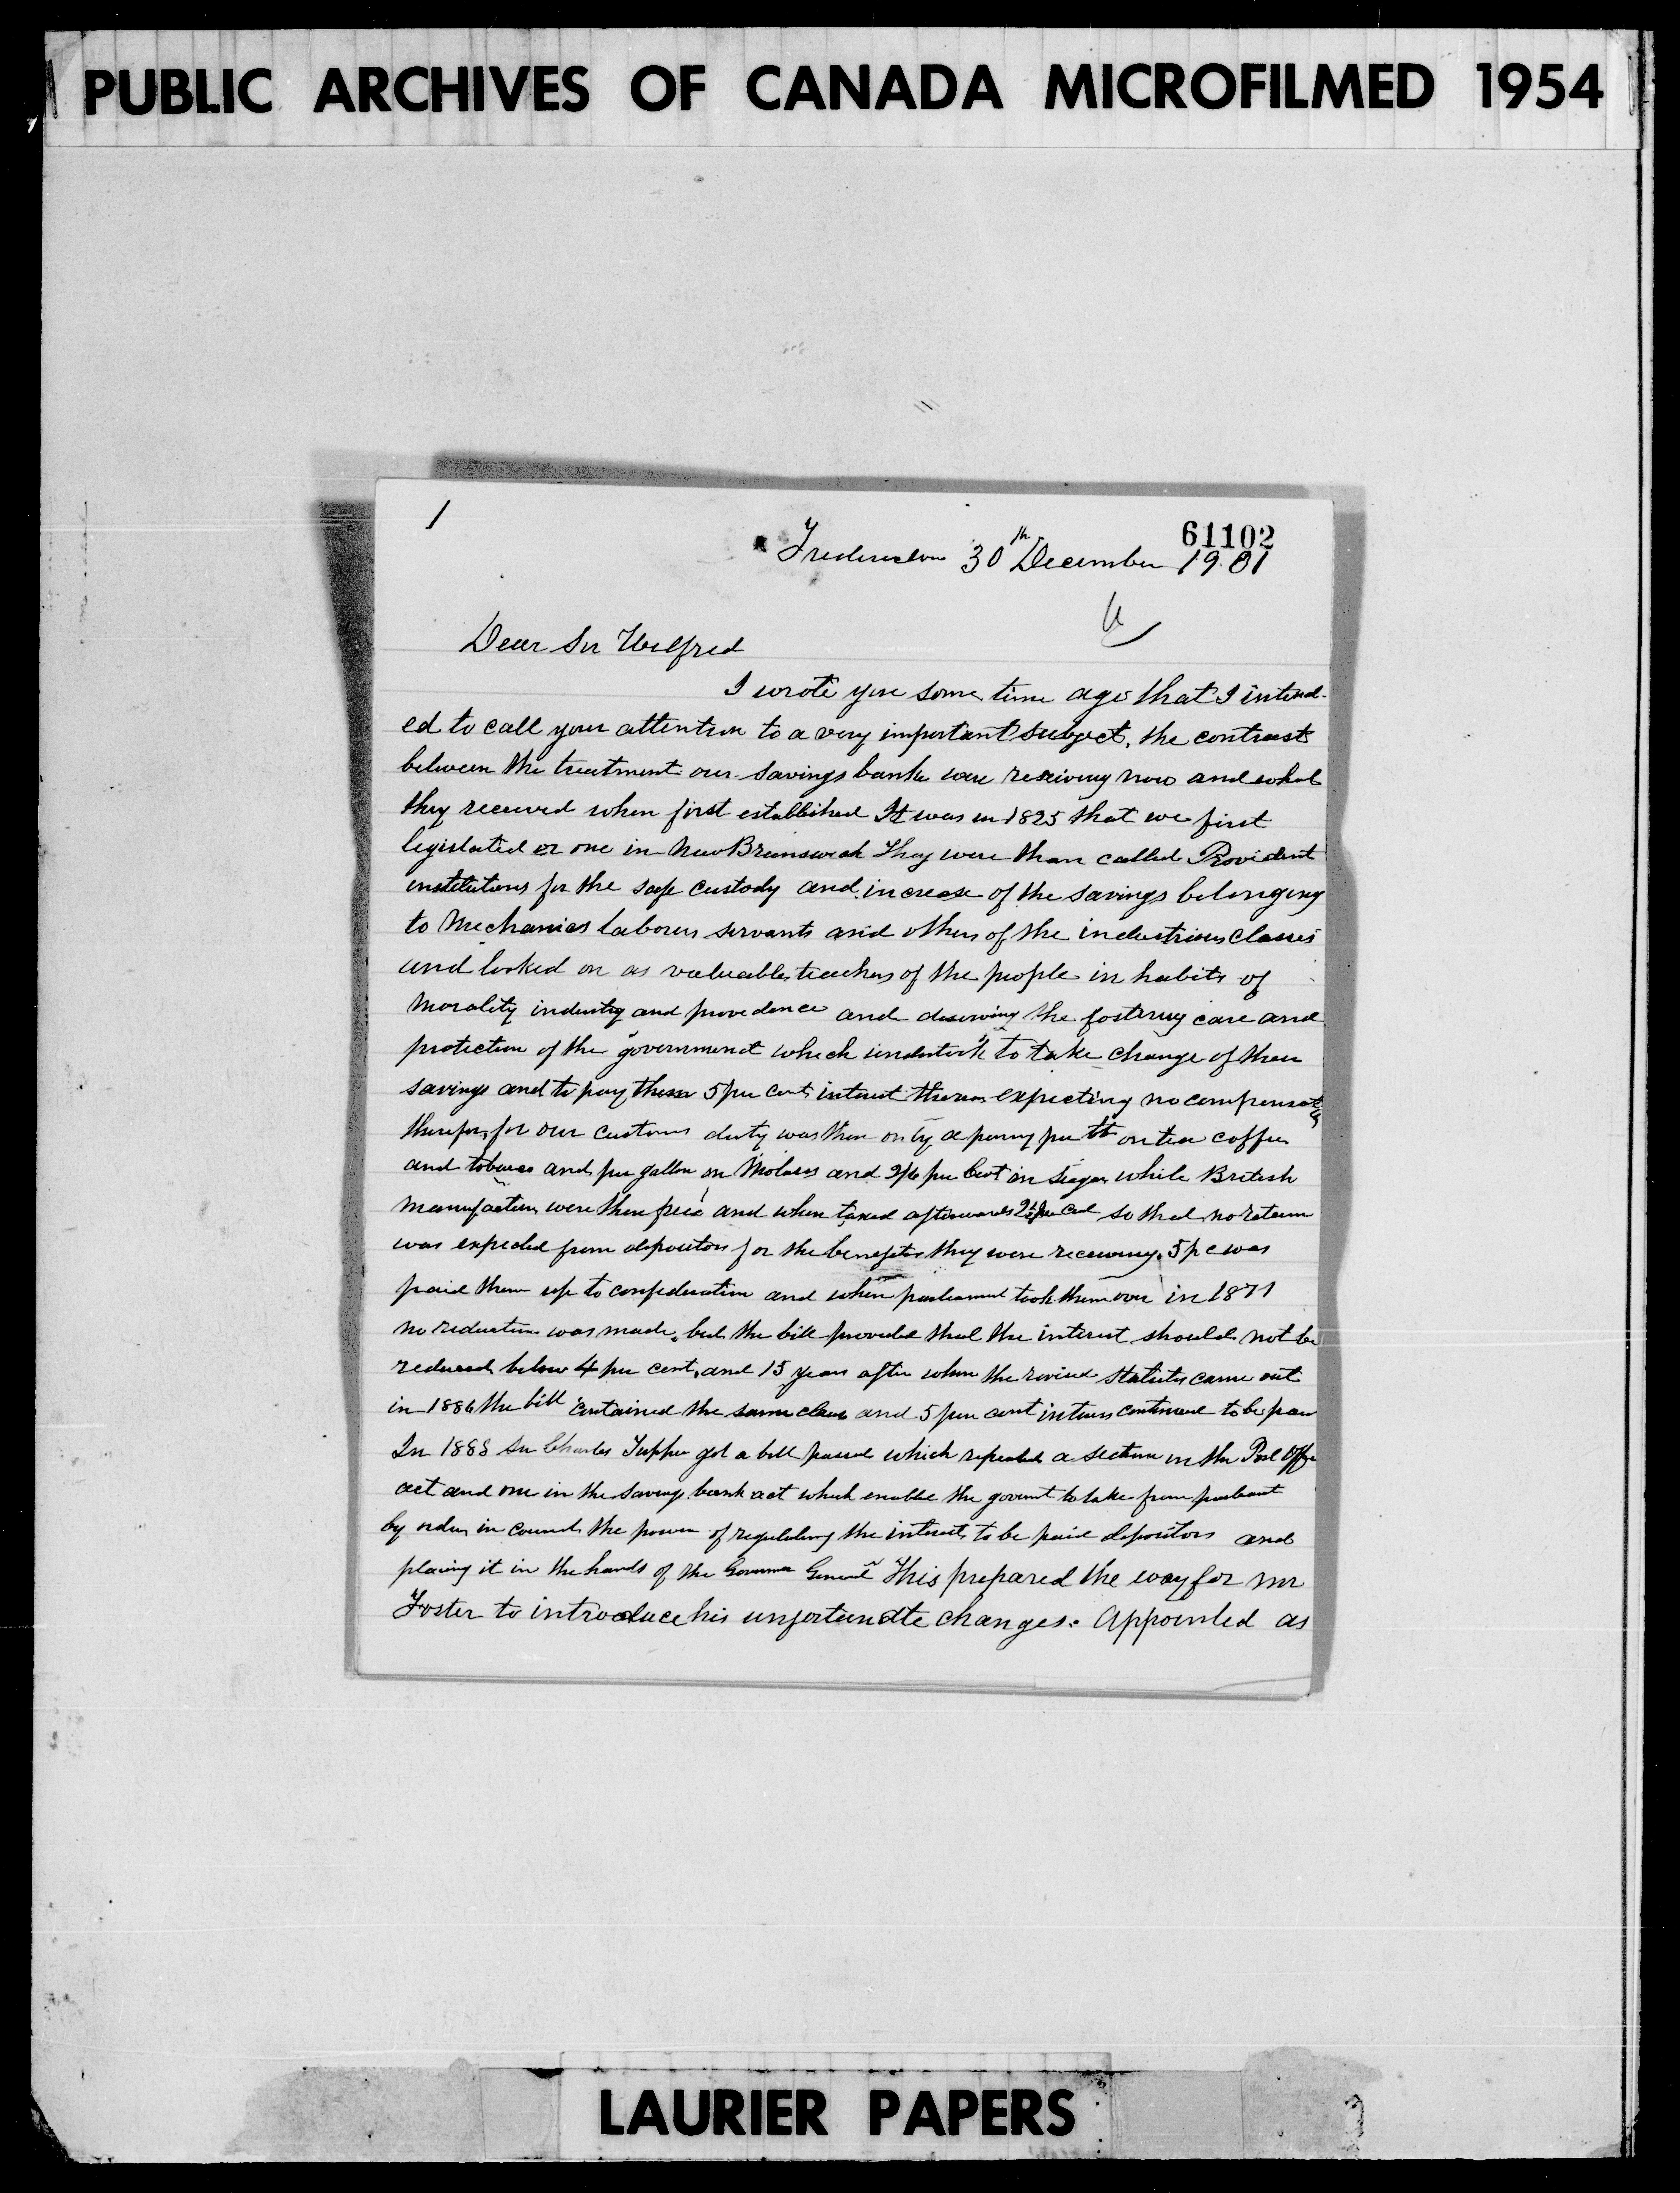 PUBLIC ARCHIVES OF CANADA MICROFILMED 1954
1
61102
Fredericton 30th December 1901
Dear Sir Wilfred
I wrote you some time ago that I intend-
ed to call your attention to a very important subject, the contrast
between the treatment our savings banks were receiving now and what
they received when first established It was in 1825 that we first
legislated on one in New Brunswick They were than called Provident
institutions for the safe custody and increase of the savings belonging
to Mechanics laborers servants and others of the industrious classes
and looked on as valuable teachers of the people in habits of
morality industry and providence and deserving the fostering care and
protection of the government which undertook to take charge of their
savings and to pay them 5 per cent interest thereon expecting no compensation
therefor, for our customs duty was then only a penny per lb on tea coffee
and tobacco and per gallon on Molasses and 2/6 per Cwt on sugar while British
manufactures were then free and when taxed afterwards 2½ per cent so that no return
was expected from depositors for the benefits they were receiving. 5 p c was
paid them up to confederation and when parliament took them over in 1871
no reduction was made, but the bill provided that the interest should not be
reduced below 4 per cent, and 15 years after when the revised statutes came out
in 1886 the bill contained the same clause and 5 per cent interest continued to be paid
In 1888 Sir Charles Tupper got a bill passed which repealed a section in the Post Office
act and one in the savings bank act which enable the goverment to take from parliament
by order in council the power of regulating the interest to be paid depositors and
placing it in the hands of the Governor General This prepared the way for Mr
Foster to introduce his unfortunate changes. Appointed as
LAURIER PAPERS